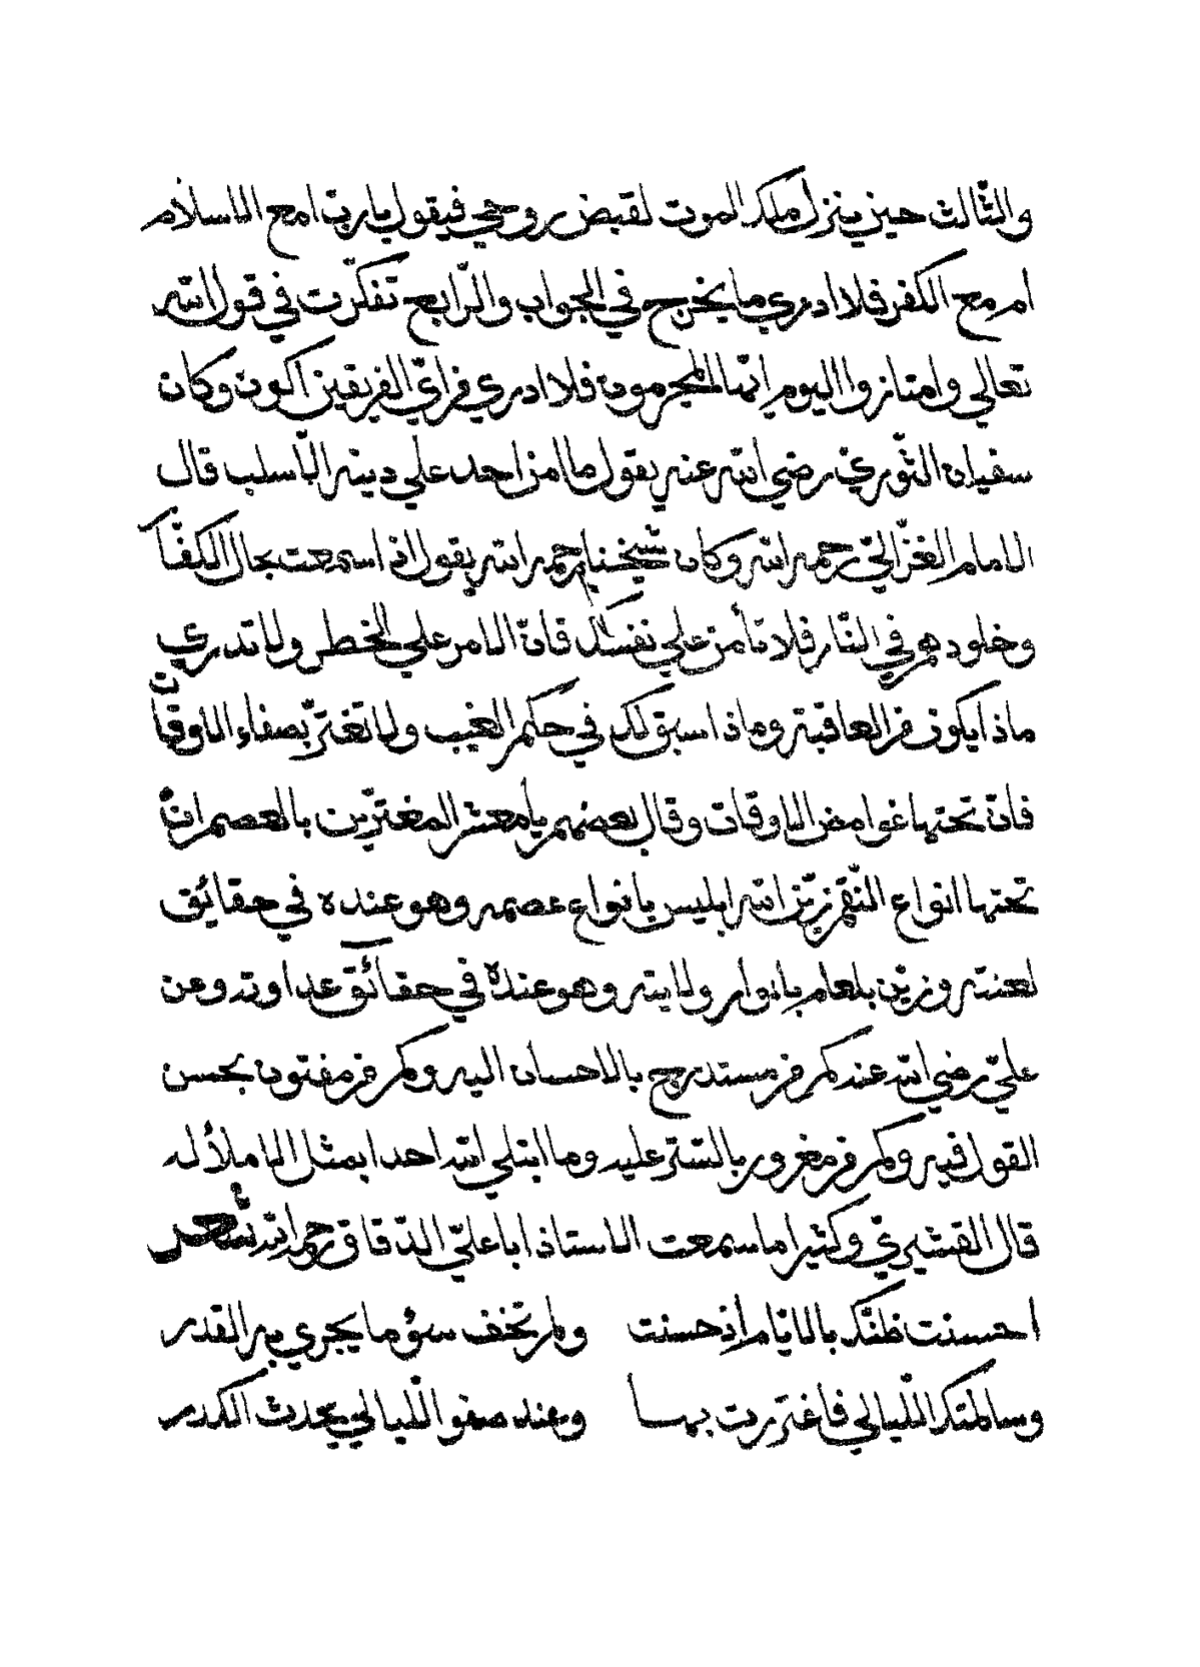 والثّالث حين ينزل ملك الموت لقبض روحي فيقول يا ربّ امع الاسلام
ام مع الكفر فلا ادري ما يخرج في الجواب والرّابع تفكّرت في قول اللّه
تعالي وامتازوا اليوم ايّها المجرمون فلا ادري من ايّ الفريقين اكون وكان
سفيان الثّوريّ رضي اللّه عنه يقول ما امن احد علي دينه الّا سلب قال
الامام الغزّاليّ رحمه اللّه وكان شيخنا رحمه اللّه يقول اذا سمعت بحال الكفّار
وخلودهم في النّار فلا تأمن علي نفسك فانّ الامر علي الخطر ولا تدري
ماذا يكون من العاقبة وماذا سبق لك في حكم الغيب ولا تغترّ بصفاء الاوقات
فانّ تحتها غوامض الاوقات وقال بعضهم يا معشر المغترّين بالعصم انّ
تحتها انواع النّقم زيّن اللّه ابليس بانواع عصمه وهو عنده في حقايق
لعنته وزيّن بلعام بانوار ولايته وهو عنده في حقائق عداوته وعن
عليّ رضي اللّه عنه كم من مستدرج بالاحسان اليه وكم من مفتون بحسن
القول فيه وكم من مغرور بالسّتر عليه وما ابتلي اللّه احدا بمثل الاملأ له
قال القشيريّ وكثيرا ما سمعت الاستاذ ابا عليّ الدّقاق رحمه اللّه شعر
احسنت ظنّك بالايّام اذ حسنت ولم تخف سؤ ما يجري به القدر
وسالمتك اللّيالي فاغتررت بها وعند صفو اللّيالي يحدث الكدر